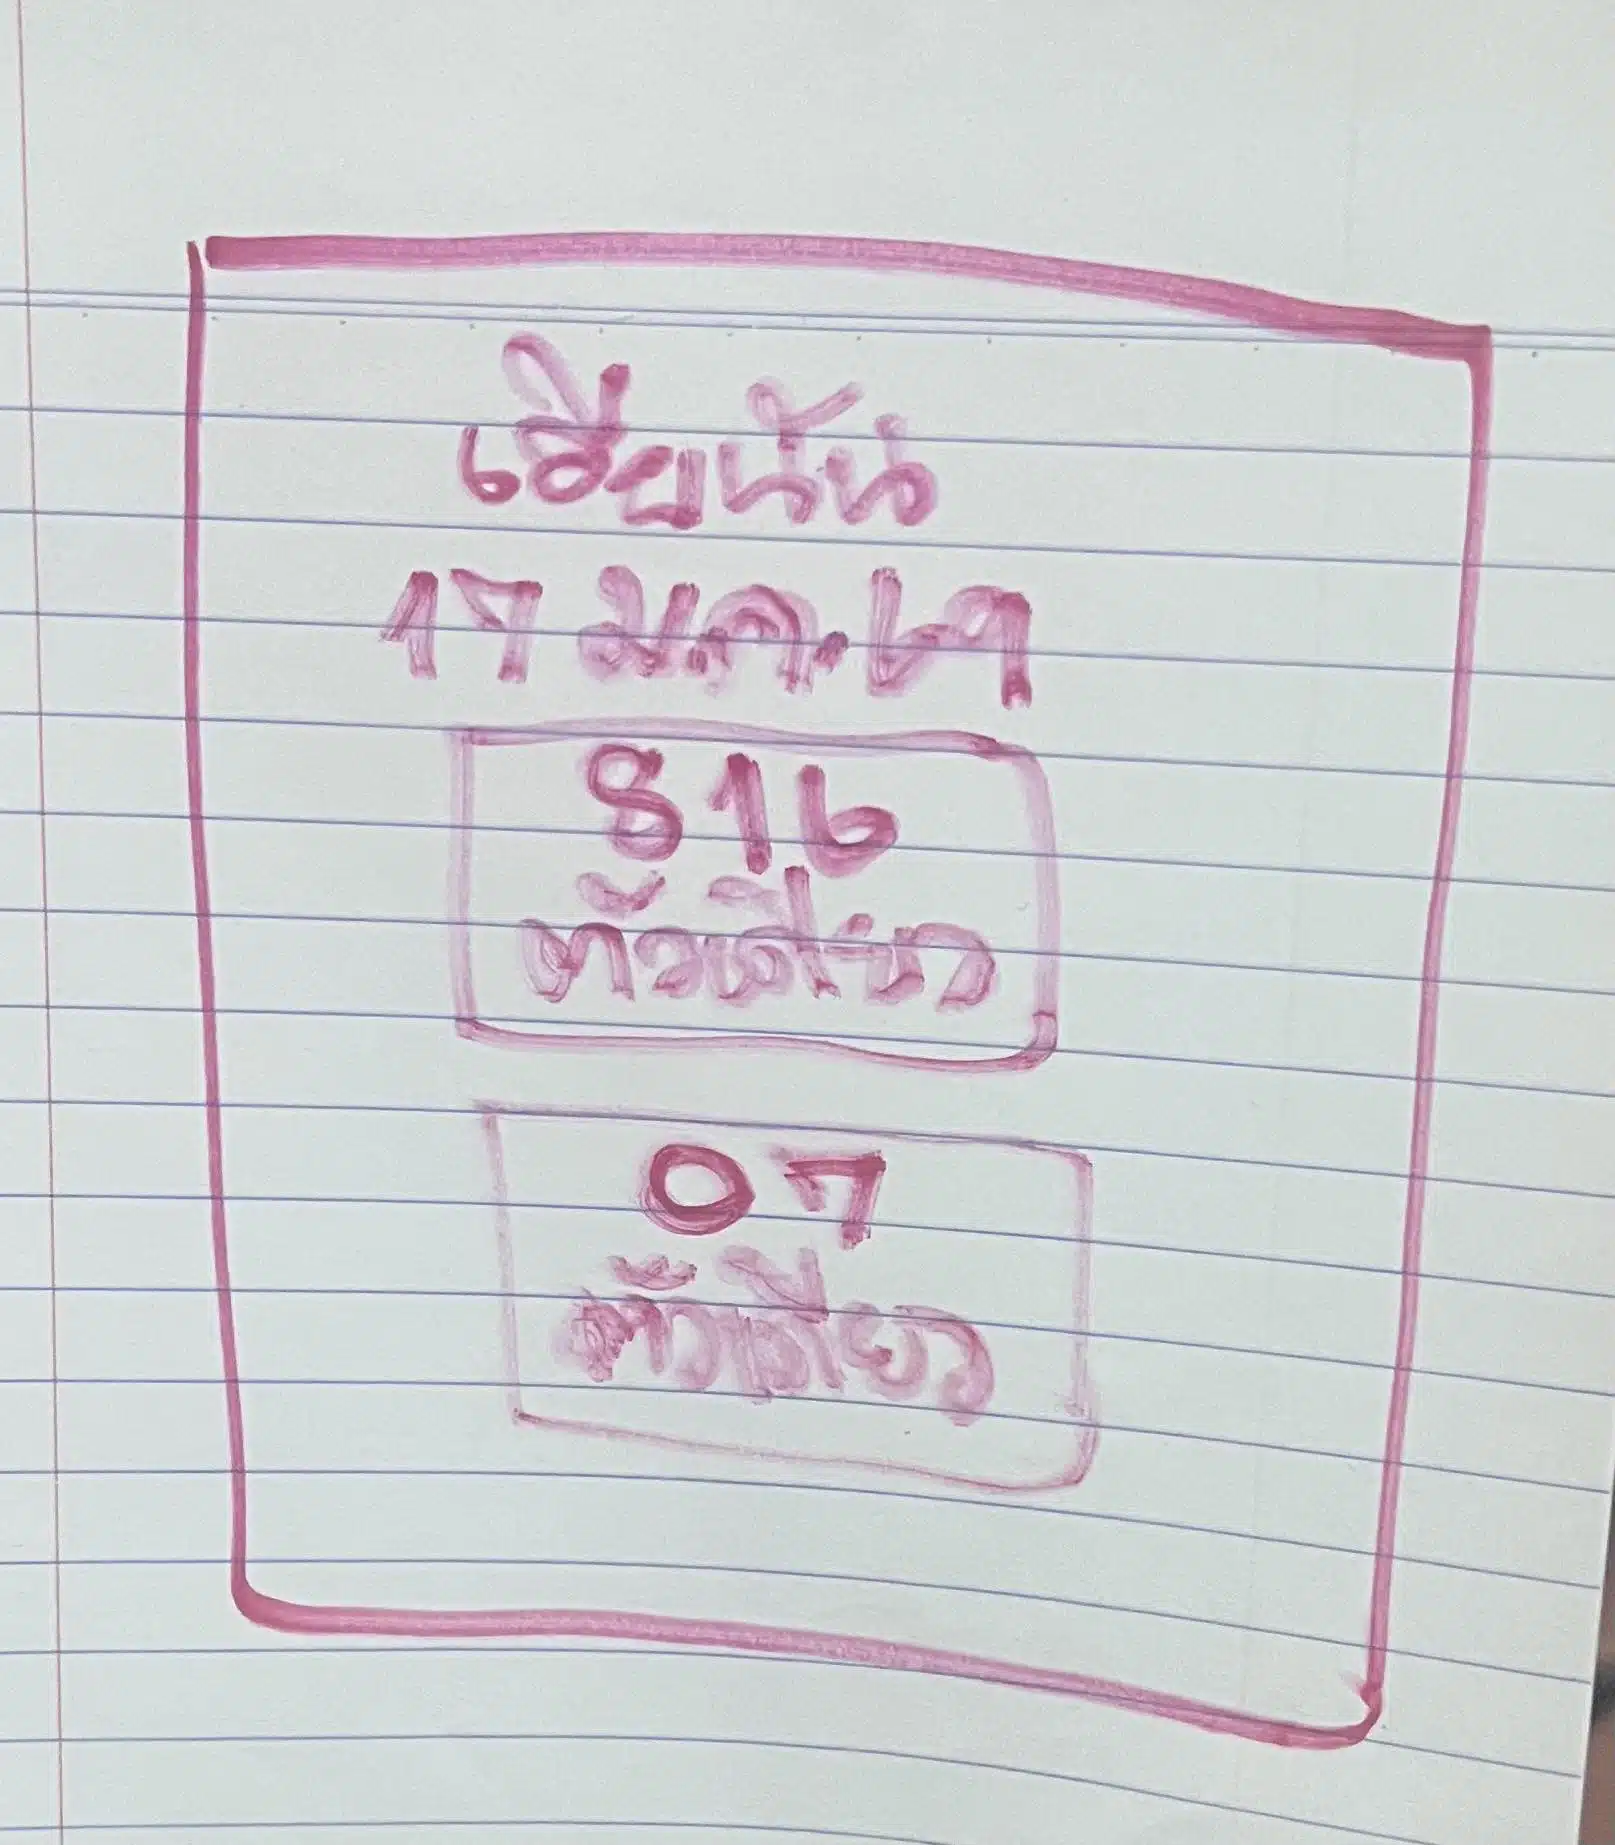 เฮียนัน
17 ม.ค.67
816
ตัวเดียว
07
ตัวเดียว